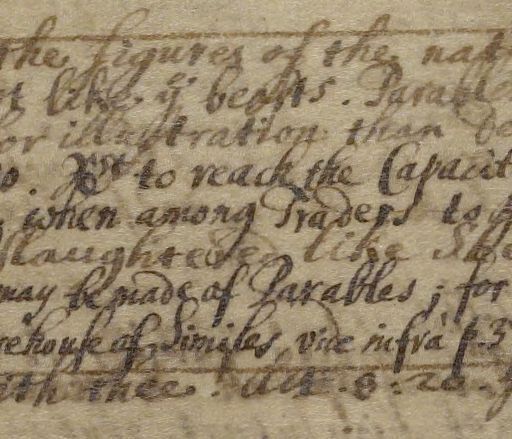 the figures of the nat
t like yͤ beasts. Parabl
or illustration than de
o. Xst to reach the Capacit
when among Traders to
slaughtered like She
may be made of Parables; for
rehouse of Similes, vide infrà p. 3
ith thee. Act. 8: 20.